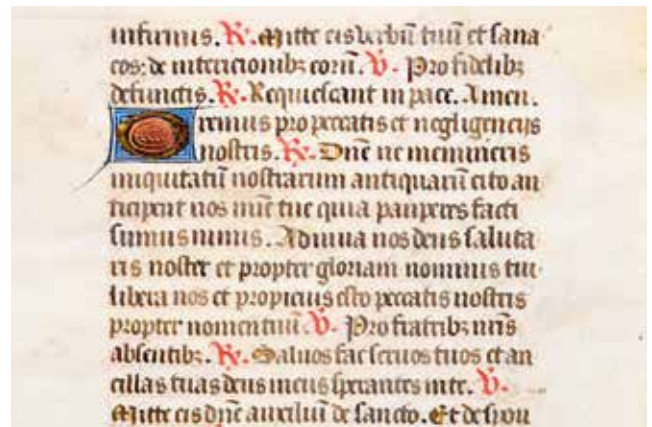 infirmis. R̸. Mitte eis verbū tuū et sana
eos: de interic̄ionibꝫ eorū. V̸. Pro fidelibꝫ
defunctis. R̸. Requiescant in pace. Amen.
Oremus pro peccatis et negligencijs
nostris. R̸. Dn̄e ne memineris
iniquitatū nostrarum antiquarū cito an
ticipent nos mīe tue quia pauperes facti
sumus nimis. Adiuua nos deus saluta
ris noster et propter gloriam nominis tui
libera nos et propicius esto peccatis nostris
propter nomen tuū. V̸. Pro fratribꝫ nr̄is
absentibꝫ. R̸. Saluos fac seruos tuos et an
cillas tuas deus meus sperantes in te. V̸.
Mitte eis dn̄e auxiliū de sancto. Et de syon